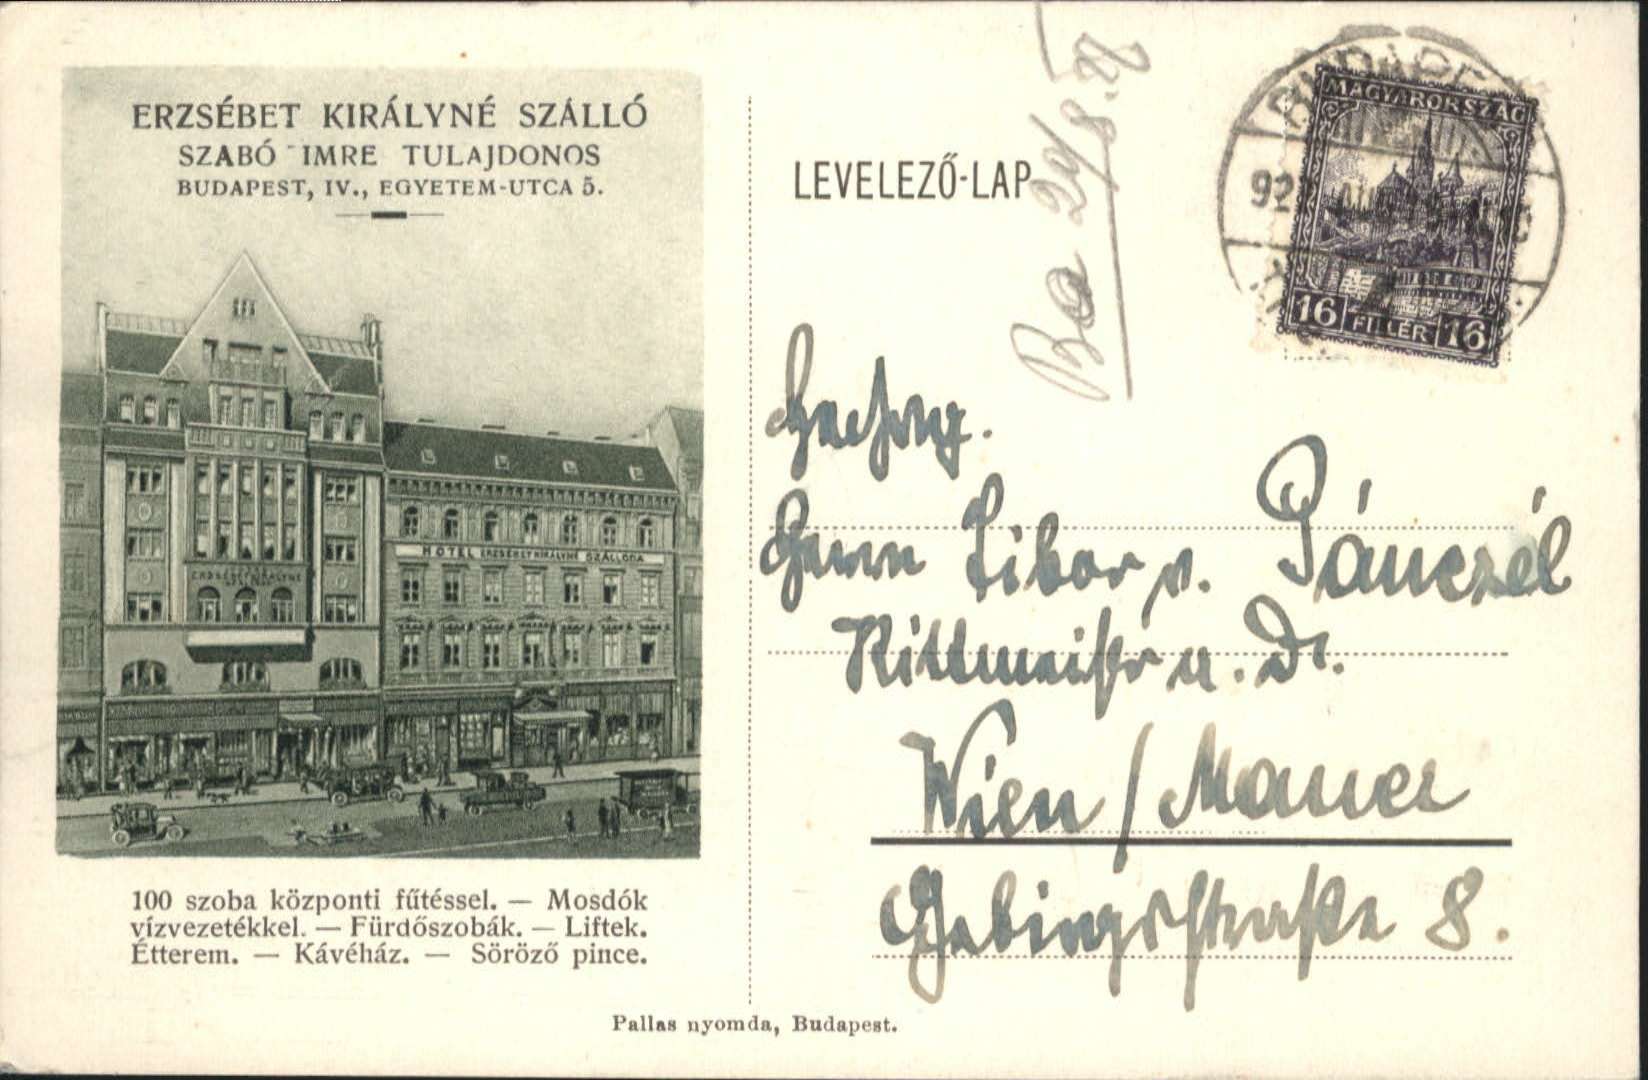 ERZSÉBET KIRÁLYNÉ SZÁLLÓ
SZABÓ IMRE TULAJDONOS
BUDAPEST, IV., EGYETEM-UTCA 5.
HOTEL ERZSÉBET KIRÁLYNÉ SZÁLLODA
ERZSÉBET KIRÁLYNÉ
100 szoba központi fűtéssel. — Mosdók
vízvezetékkel. — Fürdőszobák. — Liftek.
Étterem. — Kávéház. — Söröző pince.
Pallas nyomda, Budapest.
LEVELEZŐ-LAP
Ba 29/8.28
MAGYARORSZÁG
16 FILLÉR 16
BUDAPEST
Hochwg.
Herrn Tibor v. Pánczél
Rittmeister u. Dr.
Wien / Mauer
Gebirgsstraße 8.